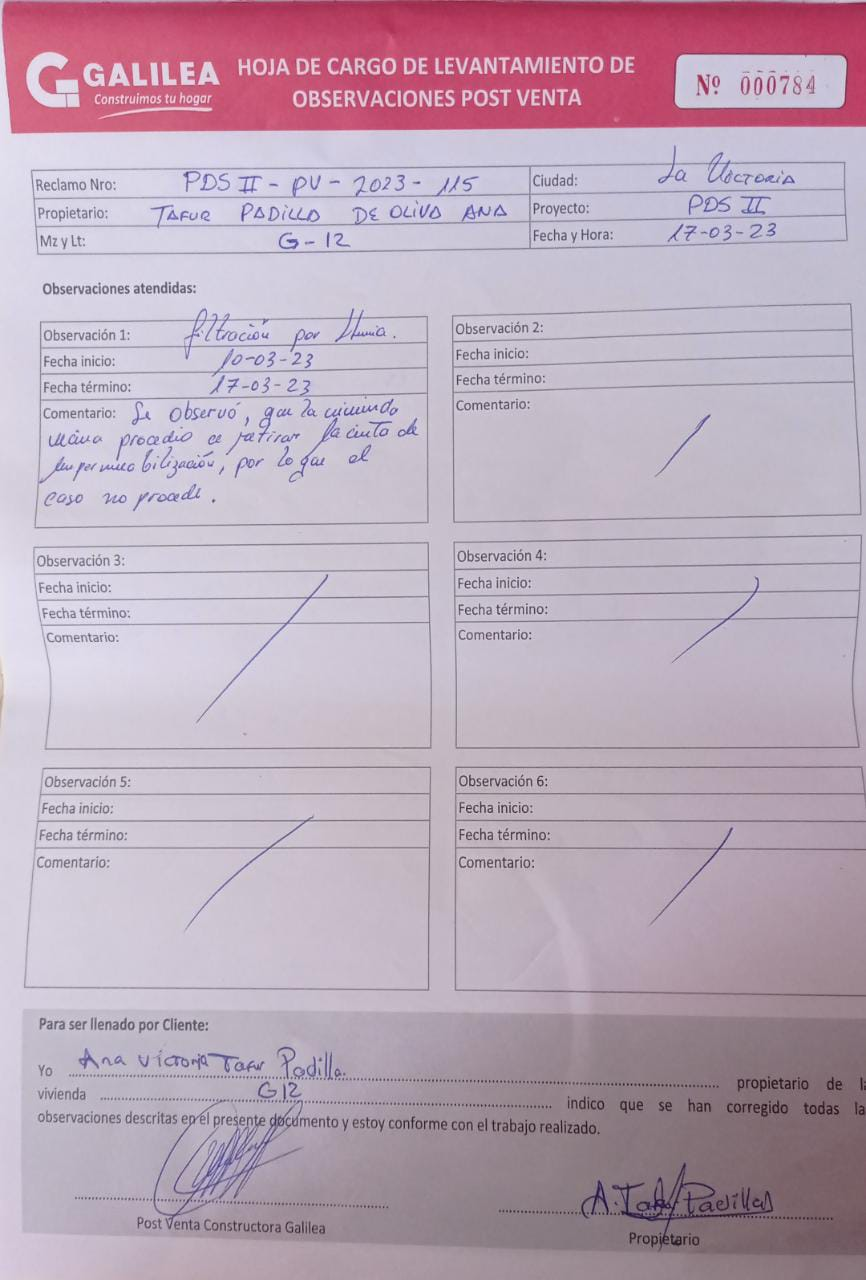 GALILEA
Construimos tu hogar
HOJA DE CARGO DE LEVANTAMIENTO DE
OBSERVACIONES POST VENTA
Nº 000784
Reclamo Nro: PDS II - PV - 2023 - 115
Ciudad: La Victoria
Propietario: TAFUR PADILLA DE OLIVA ANA
Proyecto: PDS II
Mz y Lt: G-12
Fecha y Hora: 17-03-23
Observaciones atendidas:
Observación 1: filtración por lluvia.
Fecha inicio: 10-03-23
Fecha término: 17-03-23
Comentario: Se observó, que la vivienda
vecina procedio a retirar la cinta de
impermeabilización, por lo que el
caso no procede.
Observación 2:
Fecha inicio:
Fecha término:
Comentario:
Observación 3:
Fecha inicio:
Fecha término:
Comentario:
Observación 4:
Fecha inicio:
Fecha término:
Comentario:
Observación 5:
Fecha inicio:
Fecha término:
Comentario:
Observación 6:
Fecha inicio:
Fecha término:
Comentario:
Para ser llenado por Cliente:
Yo Ana Victoria Tafur Padilla. propietario de la
vivienda G12 indico que se han corregido todas la
observaciones descritas en el presente documento y estoy conforme con el trabajo realizado.
A. Tafur Padilla
Post Venta Constructora Galilea
Propietario